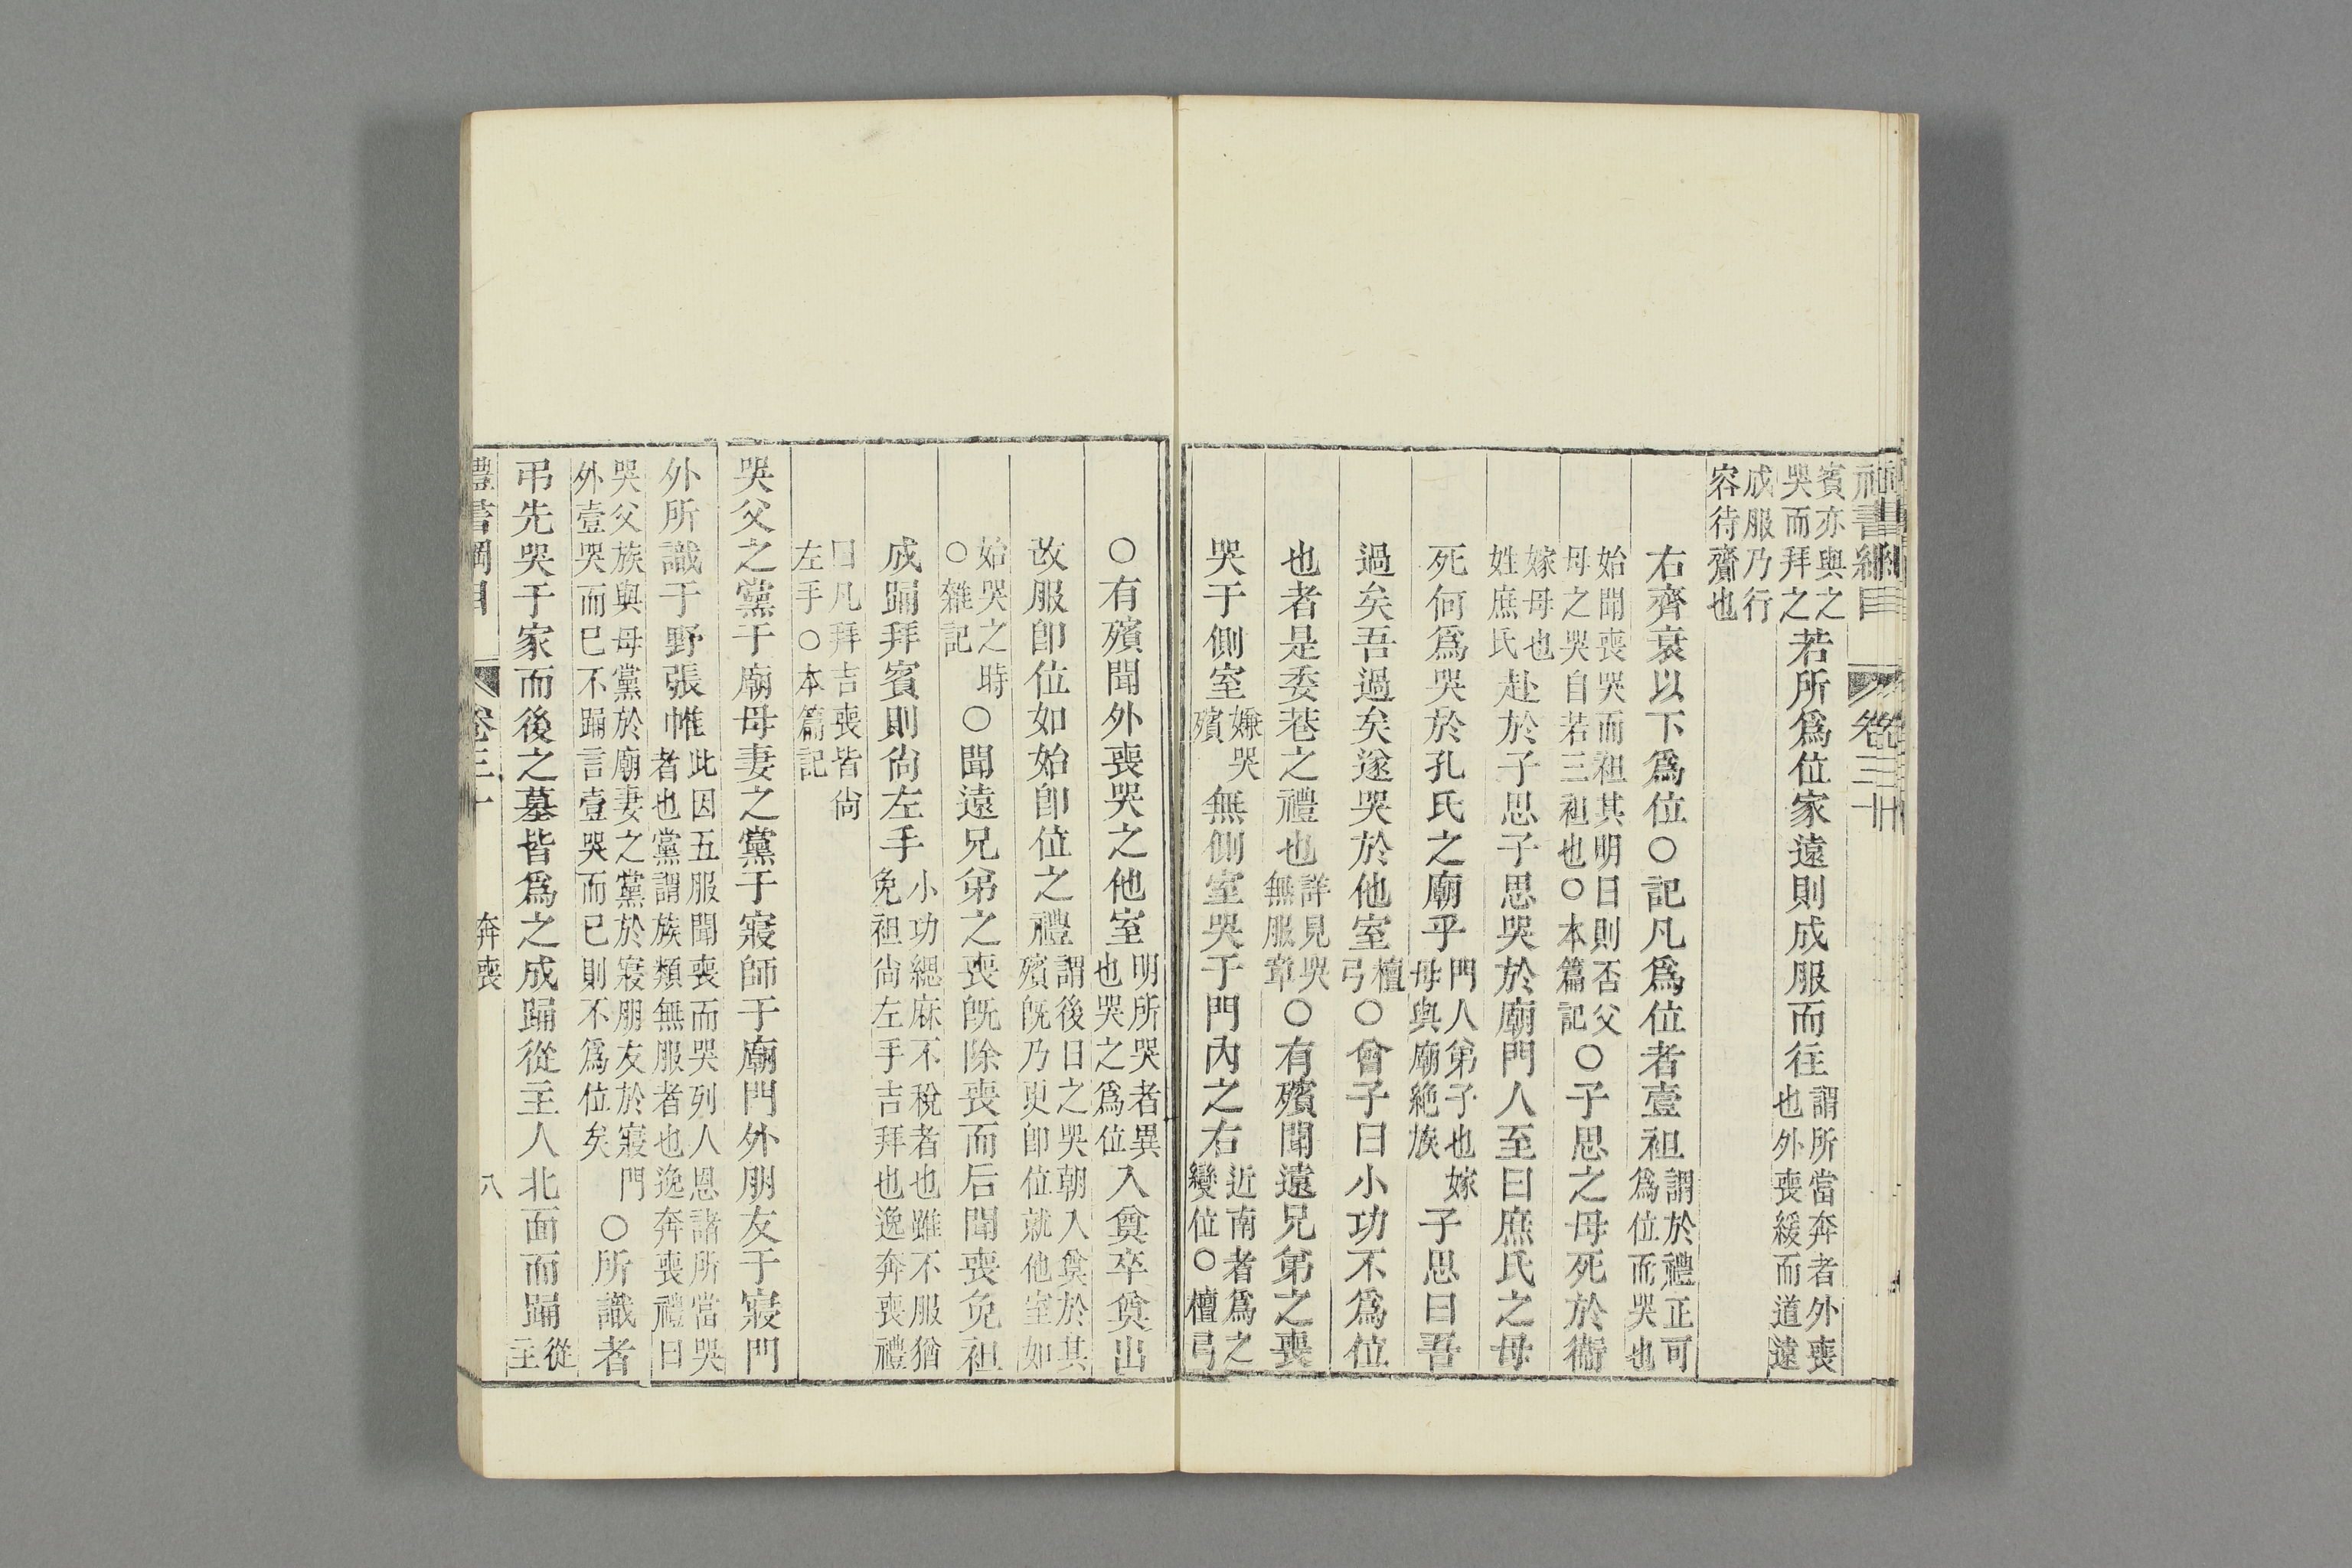 禮書綱目 卷三十
賓亦與之哭而拜之若所爲位家遠則成服而往謂所當奔者外喪也外喪緩而道遠
成服乃行容待齎也
右齊衰以下爲位○記凡爲位者壹袒謂於禮正可爲位而哭也
始聞喪哭而袒其明日則否父母之哭自若三袒也○本篇記○子思之母死於衞
嫁母也姓庶氏赴於子思子思哭於廟門人至曰庶氏之母
死何爲哭於孔氏之廟乎門人弟子也嫁母與廟絶族子思曰吾
過矣吾過矣遂哭於他室檀弓○曾子曰小功不爲位
也者是委巷之禮也詳見哭無服章○有殯聞遠兄弟之喪
哭于側室嫌哭殯無側室哭于門內之右近南者爲之變位○檀弓
○有殯聞外喪哭之他室明所哭者異也哭之爲位入奠卒奠出
改服卽位如始卽位之禮謂後日之哭朝入奠於其殯旣乃更卽位就他室如
始哭之時○雜記○聞遠兄弟之喪旣除喪而后聞喪免袒
成踊拜賓則尙左手小功緦麻不稅者也雖不服猶免袒尙左手吉拜也逸奔喪禮
曰凡拜吉喪皆尙左手○本篇記
哭父之黨于廟母妻之黨于寢師于廟門外朋友于寢門
外所識于野張帷此因五服聞喪而哭列人恩諸所當哭者也黨謂族類無服者也逸奔喪禮曰
哭父族與母黨於廟妻之黨於寢朋友於寢門外壹哭而已不踊言壹哭而已則不爲位矣○所識者
弔先哭于家而後之墓皆爲之成踊從主人北面而踊從主
禮書綱目 卷三十 奔喪 八